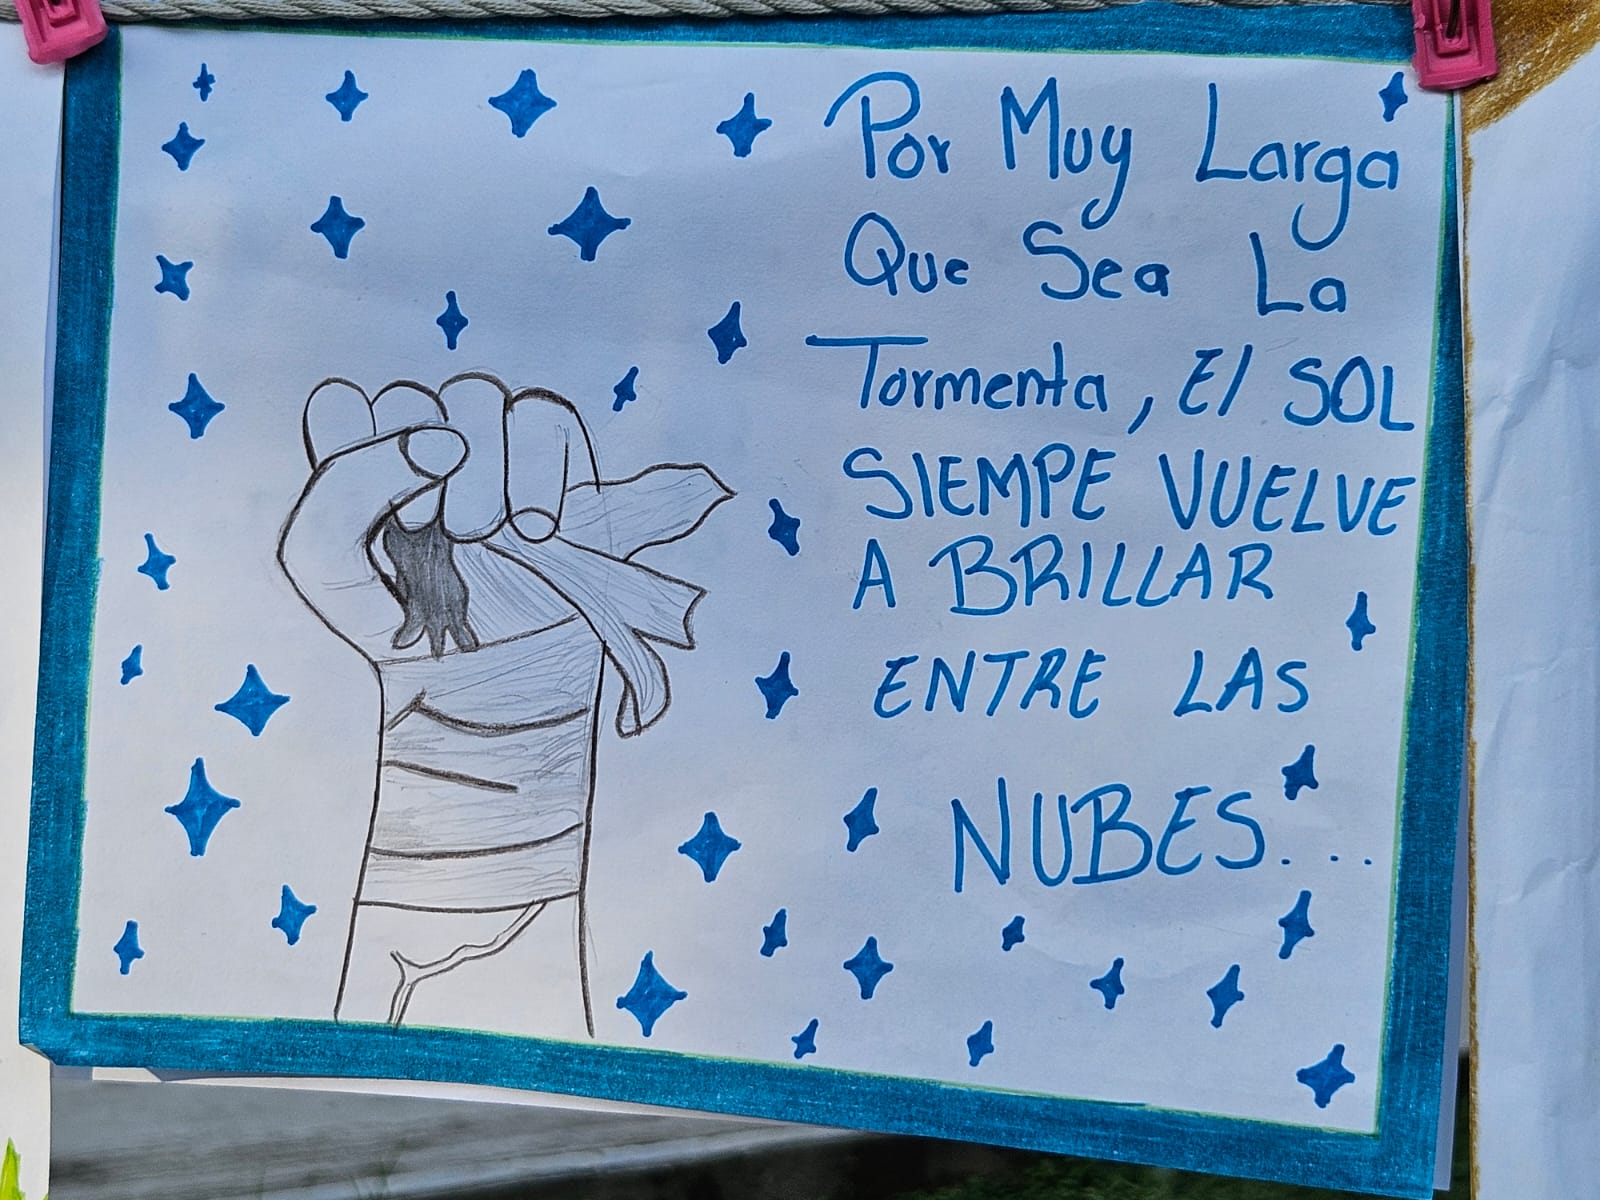 Por Muy Larga
Que Sea La
Tormenta, El SOL
SIEMPE VUELVE
A BRILLAR
ENTRE LAS
NUBES...